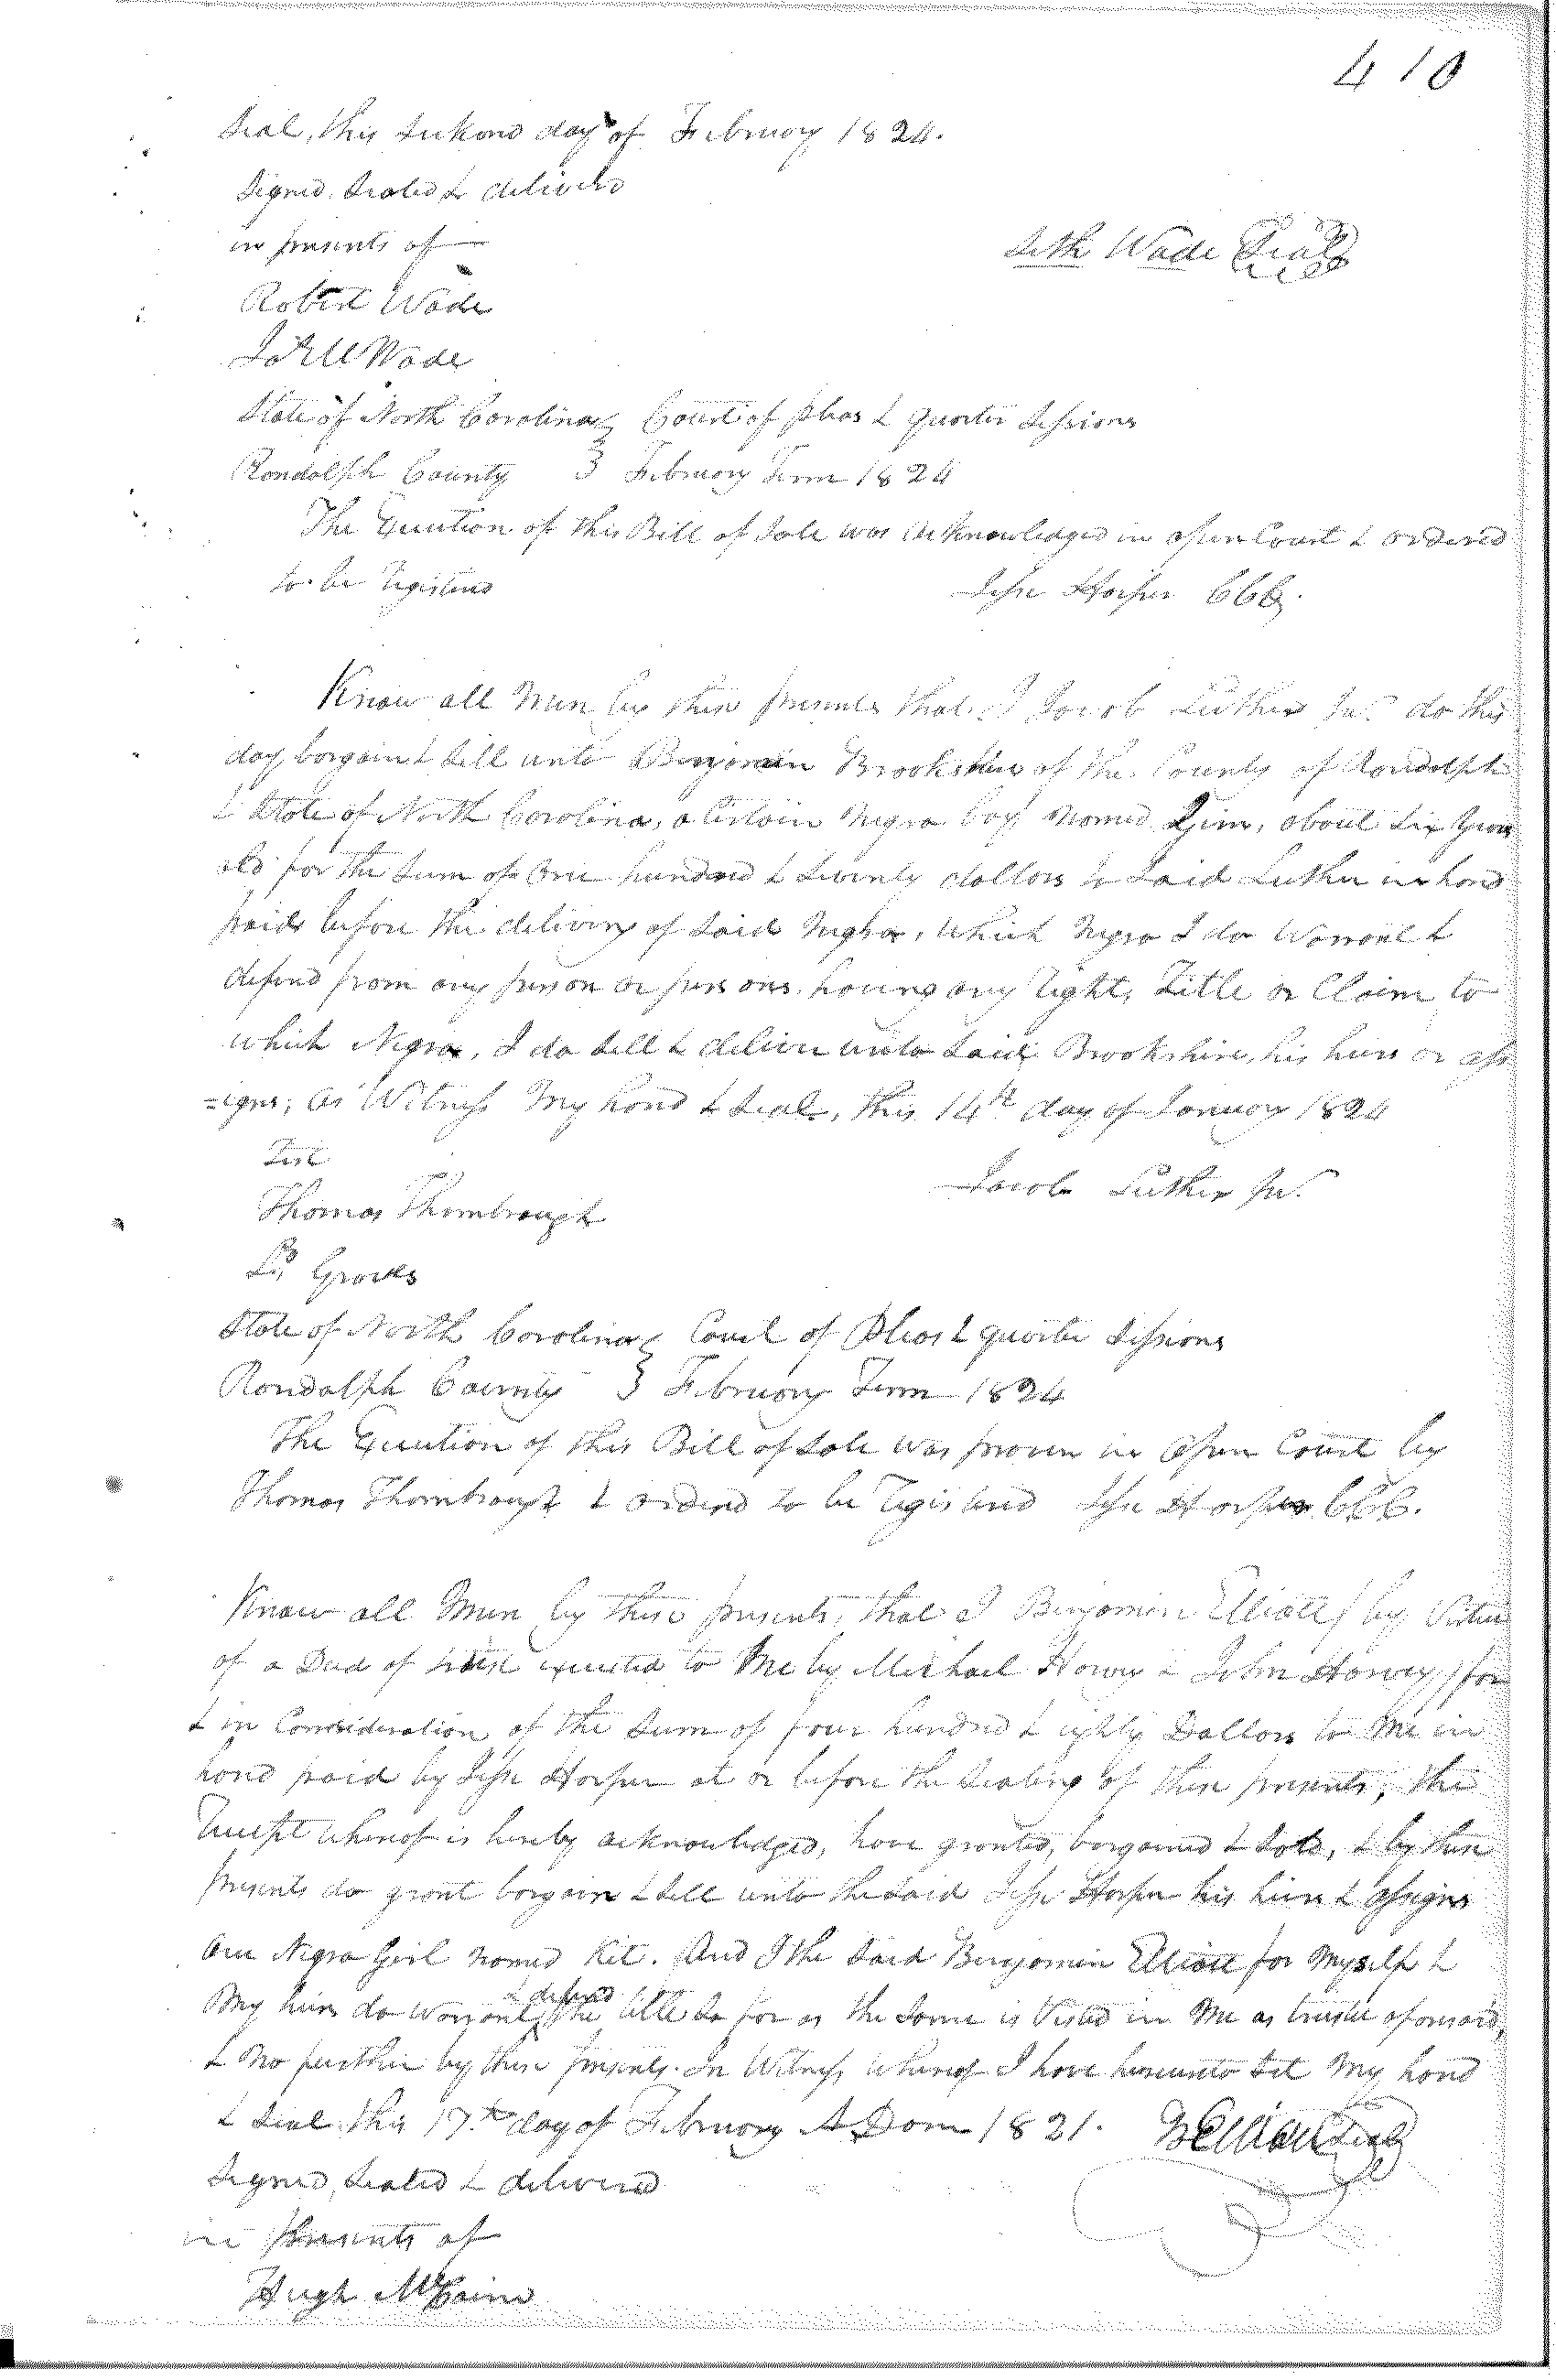 410
Seal, this second day of February 1824.
Signed, Sealed & delivered
in presents of
Seth Wade Seal
Robert Wade
Wade
State of North Carolina } Court of pleas & quarter Sessions
Randolph County } February Term 1824
The Execution of this Bill of Sale was acknowledged in open Court & ordered
to be registered Jesse Harper CCC.
Know all Men by these presents that I Jacob Luther Jur. do this
day bargain & sell unto Benjamin Brookshire of the County of Randolph
& State of North Carolina, a Certain Negro boy Named Jim, about Six Years
old for the Sum of One hundred & twenty dollars to Said Luther in hand
paid before the delivery of Said Negro, which Negro I do Warrant &
defend from any person or persons having any right, Title or Claim to
which Negro, I do Sell & deliver unto Said Brookshire, his heirs or ass
=igns, as Witness My hand & Seal, this 14th day of January 1824
Test
Jacob Luther Jur.
Thomas Thornbrough
State of North Carolina } Court of Pleas & quarter Sessions
Randolph County } February Term 1824
The Execution of this Bill of Sale was proven in Open Court by
Thomas Thornbrough & ordered to be registered Jesse Harper CCC.
Know all Men by these presents, that I Benjamin Elliott (by Virtue
of a Deed of trust executed to Me by Michael Harvey & John Harvey) for
& in Consideration of the Sum of four hundred & eighty Dollars to Me in
hand paid by Jesse Harper at or before the Sealing of these presents, the
receipt whereof is hereby acknowledged, have granted, bargained & Sold, & by these
presents do grant bargain & Sell unto the Said Jesse Harper his heirs & assigns
One Negro Girl Named Kit. And I the Said Benjamin Elliott for Myself &
My heirs do warrant & defend the title So far as the Same is Vested in Me as trustee aforesaid,
& No further by these presents. In Witness Whereof I have hereunto Set My hand
& Seal this 17.th day of February A Dom 1821. B Elliott Seal
Signed, Sealed & delivered
in presents of
Hugh McCain